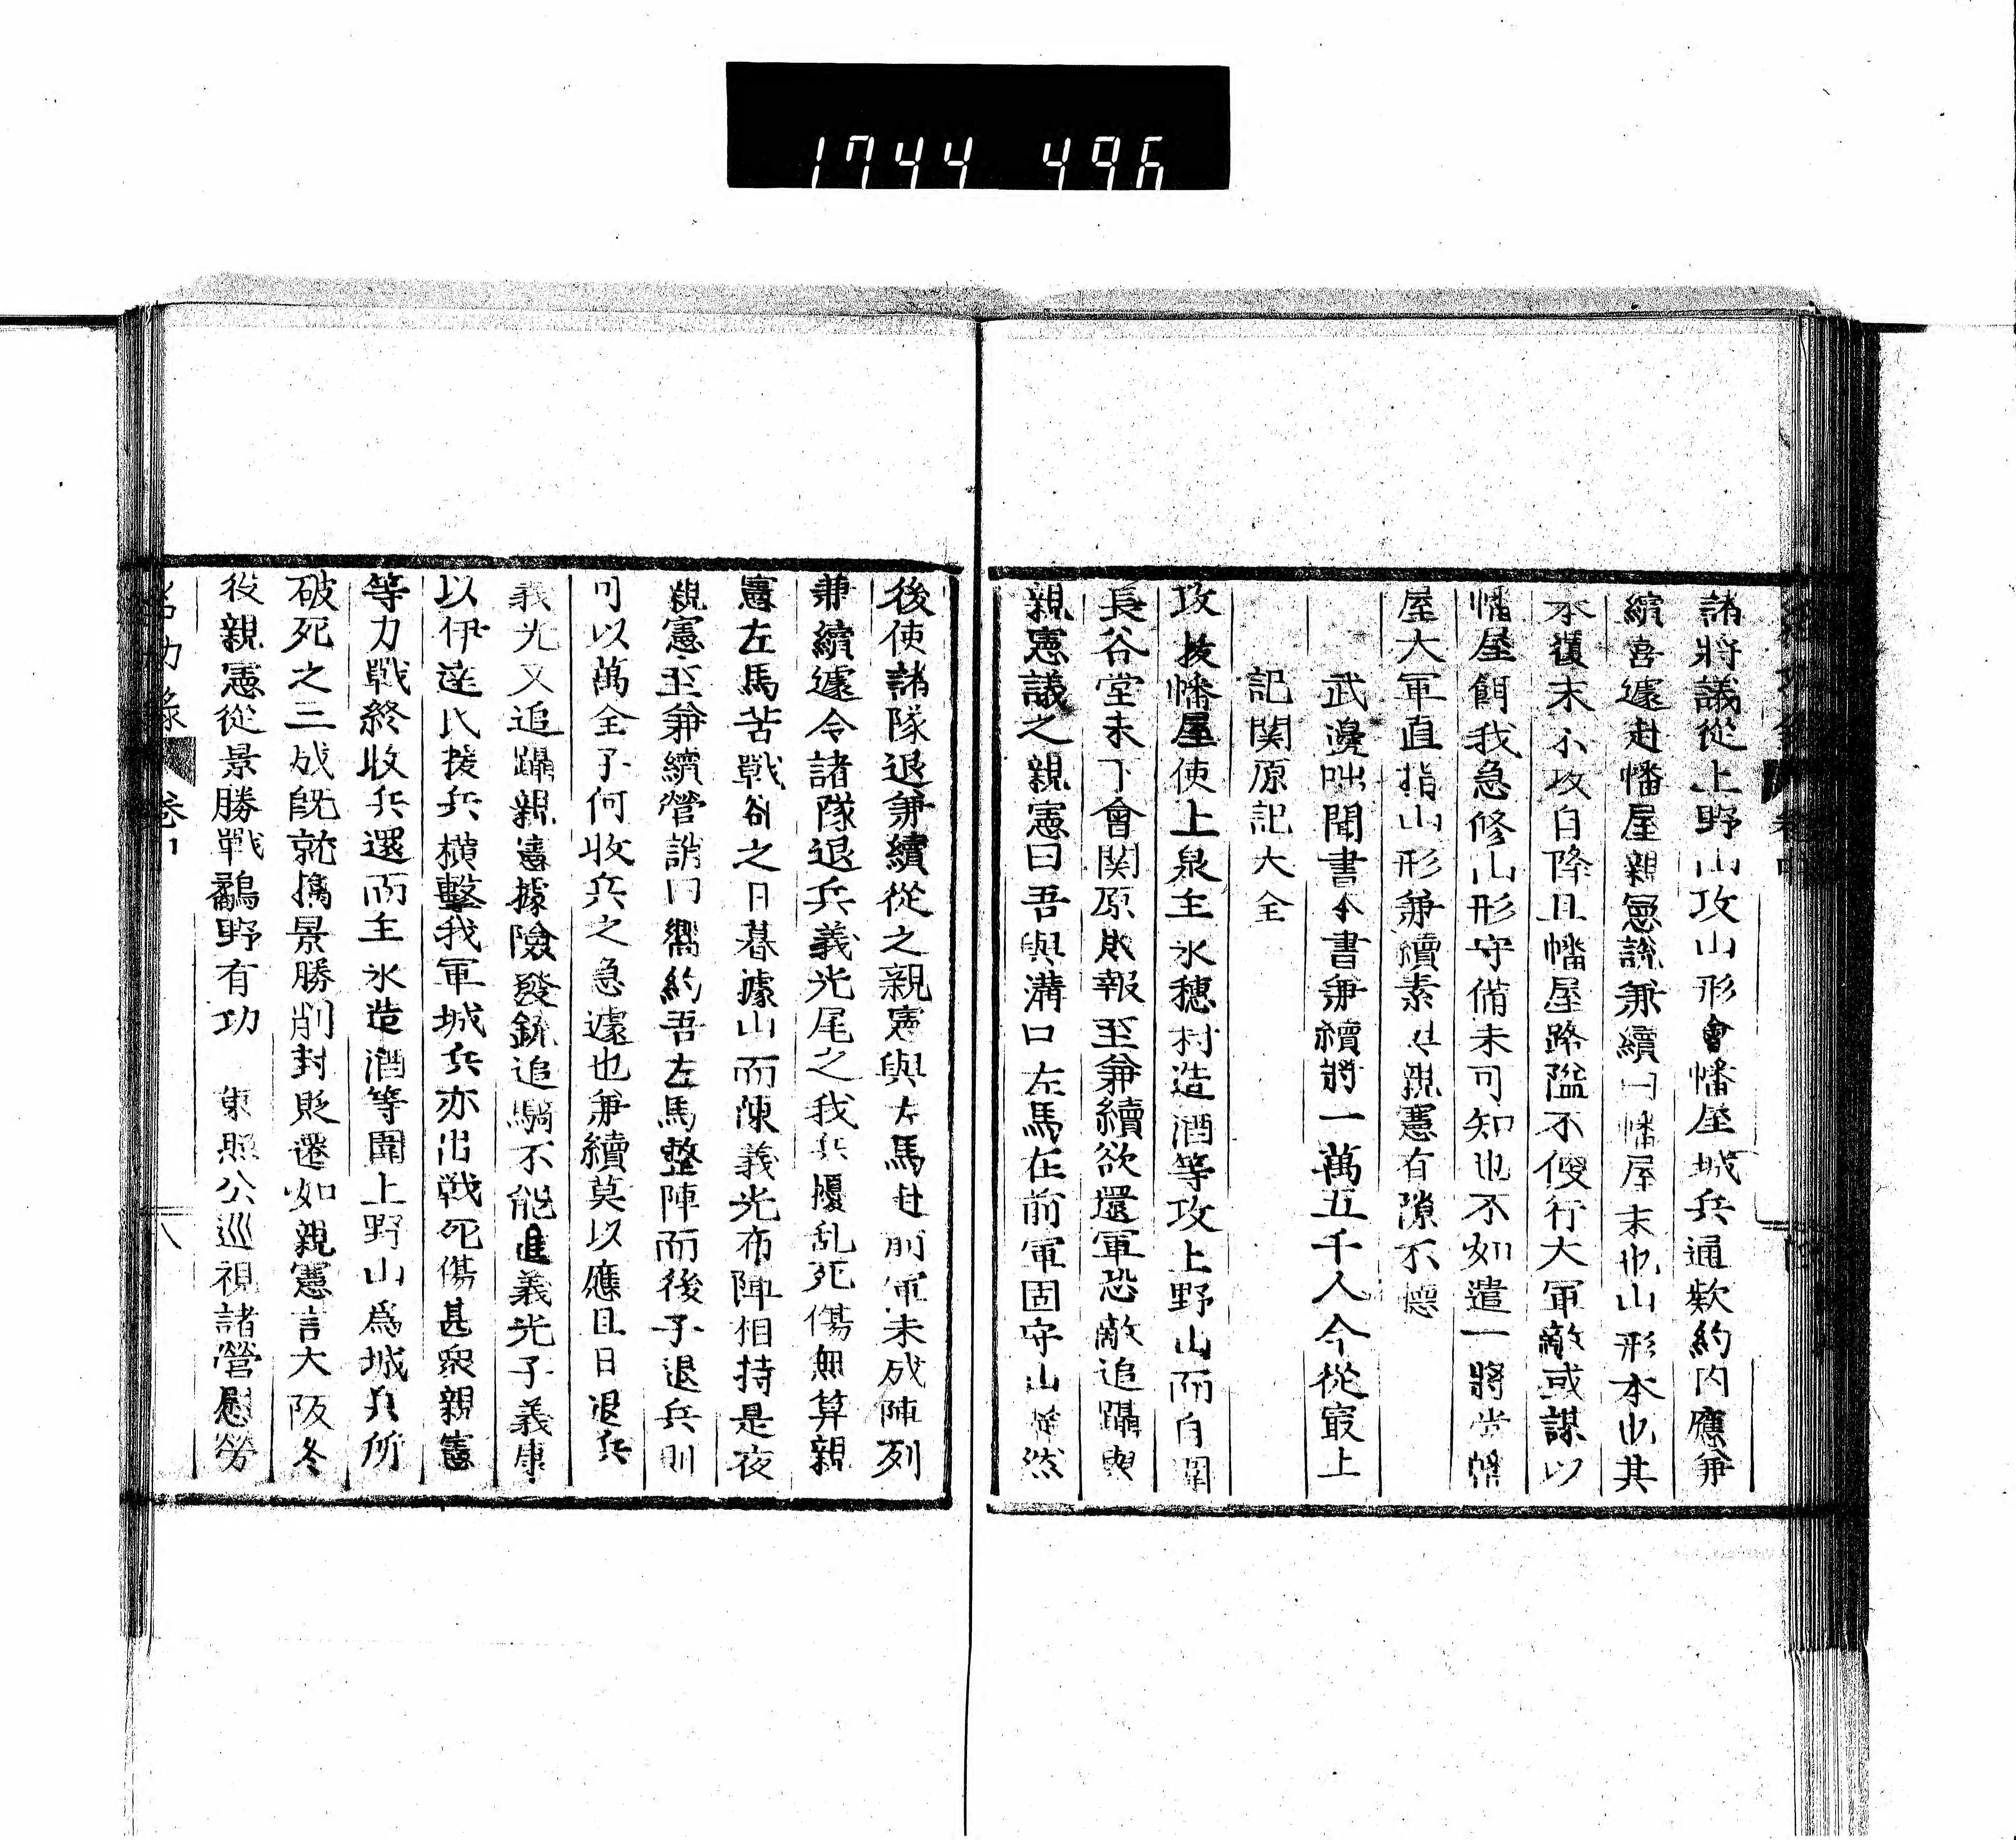 1744 496
諸將議從上野山攻山形會幡屋城兵通欵約内應兼
續喜遽赴幡屋親憲説兼續曰幡屋末也山形本也其
本覆末不攻自降且幡屋路隘不便行大軍敵或謀以
幡屋餌我急修山形守備未可知也不如遣一將當幡
屋大軍直指山形兼續素與親憲有隙不聽
武邊咄聞書本書兼續將一萬五千人今從最上
記関原記大全
攻抜幡屋使上泉主水穗村造酒等攻上野山而自圍
長谷堂未下會関原敗報至兼續欲還軍恐敵追躡與
親憲議之親憲曰吾與溝口左馬在前軍固守山 然
後使諸隊退兼續從之親憲與左馬赴前軍未成陣列
兼續遽令諸隊退兵義光尾之我兵擾乱死傷無算親
憲左馬苦戰郤之日暮據山而陳義光布陣相持是夜
親憲至兼續營誚曰嚮約吾左馬整陣而後子退兵則
可以萬全子何收兵之急遽也兼續莫以應且日退兵
義光又追躡親憲據險發銃追騎不能進義光子義康
以伊達氏援兵横擊我軍城兵亦出戰死傷甚衆親憲
等力戰終收兵還而主水造酒等圍上野山爲城兵所
破死之三成既就擒景勝削封貶遷如親憲言大阪冬
役親憲從景勝戰鷸野有功　東照公巡視諸營慰勞
名功錄
八